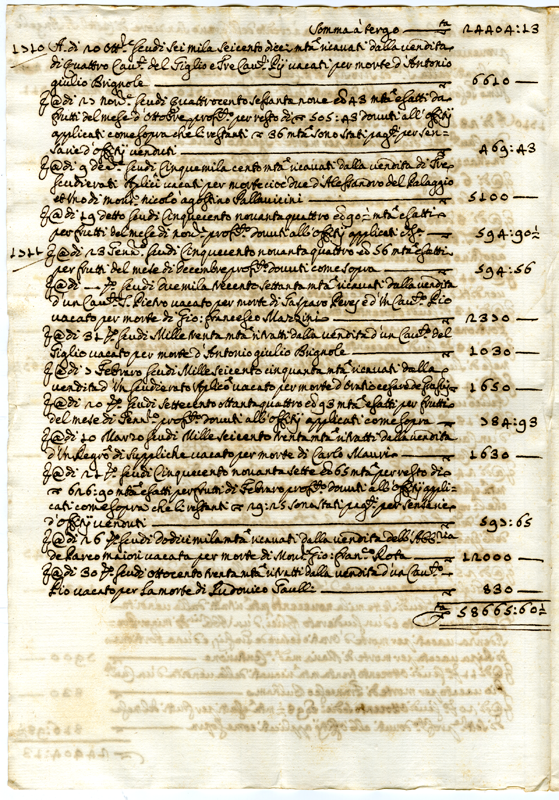 Somma à tergo — 24404:13
1710 A. di 20 Ott.e scudi sei mila seicento dieci mta ricavati dalla vendita
di quattro Cav.ti del Giglio e Tre Cav.ti Pij vacati per morte d'Antonio
giulio Brignole — 6610 —
E @ di 27 nov.e scudi quattrocento sessanta nove ed 43 mta esatti da
frutti del mese d'Ottobre pross.o per resto di 505:43 douuti all'offitij
applicati come sopra che li restanti 36 mta sono stati pag.ti per sen=
sarie d'offitij venduti — 469:43
E @ di 9 dec.e scudi Cinque mila cento mta ricavati dalla vendita di Tre
scudierati Aplici vacati per morte cioè due d'Alessandro del Palaggio
et uno di mons.r nicolo agostino Pallavicini — 5100 —
E @ di 19 detto scudi Cinquecento novanta quattro ed 90 ½ mta esatti
per frutti del mese di nou.e pross.o douuti all'offitij applicati — 594:90½
1711 E @ di 23 Genn.o scudi Cinquecento novanta quattro ed 56 mta esatti
per frutti del mese di decembre pross.o douuti come sopra — 594:56
E @ di — scudi due mila trecento settanta mta ricavati dalla vendita
d'un Cav.to S. Pietro vacato per morte di Gasparo Perez e d'un Cav.to Pio
vacato per morte di Gio: francesco Marzini —
E @ di 31 d.o scudi Mille trenta mta ritratti dalla vendita d'un Cav.to del
Giglio vacato per morte d'Antonio giulio Brignole — 1030 —
E @ di 7 Febraro scudi Mille seicento cinquanta mta ricavati dalla
vendita d'un scudierato Aplico vacato per morte d'Oratio cesare de — 1650 —
E @ di 20 d.o scudi settecento ottanta quattro ed 93 mta esatti per frutti
del mese di Genn.o pross.o douuti all'offitij applicati come sopra — 784:93
E @ di 10 Marzo scudi Mille seicento trenta mta ritratti dalla vendita
d'un Regro di Suppliche vacato per morte di Carlo Mauri — 1630 —
E @ di 21 d.o scudi Cinquecento novanta sette ed 65 mta per resto di
626:90 mta esatti per frutti di Febraro pross.o douuti all'offitij appli=
cati come sopra che li restanti 29:25 sono stati pag.ti per senserie
d'offitij venduti — 597:65
E @ di 26 d.o scudi dodici mila mta ricavati dalla vendita dell'Abbria
de Parco maiori vacata per morte di Mons.r Gio: Rota — 12000 —
E @ di 30 d.o scudi ottocento trenta mta ritratti dalla vendita d'un Cav.to
Pio vacato per la morte di Ludovico — 830 —
58665:60½